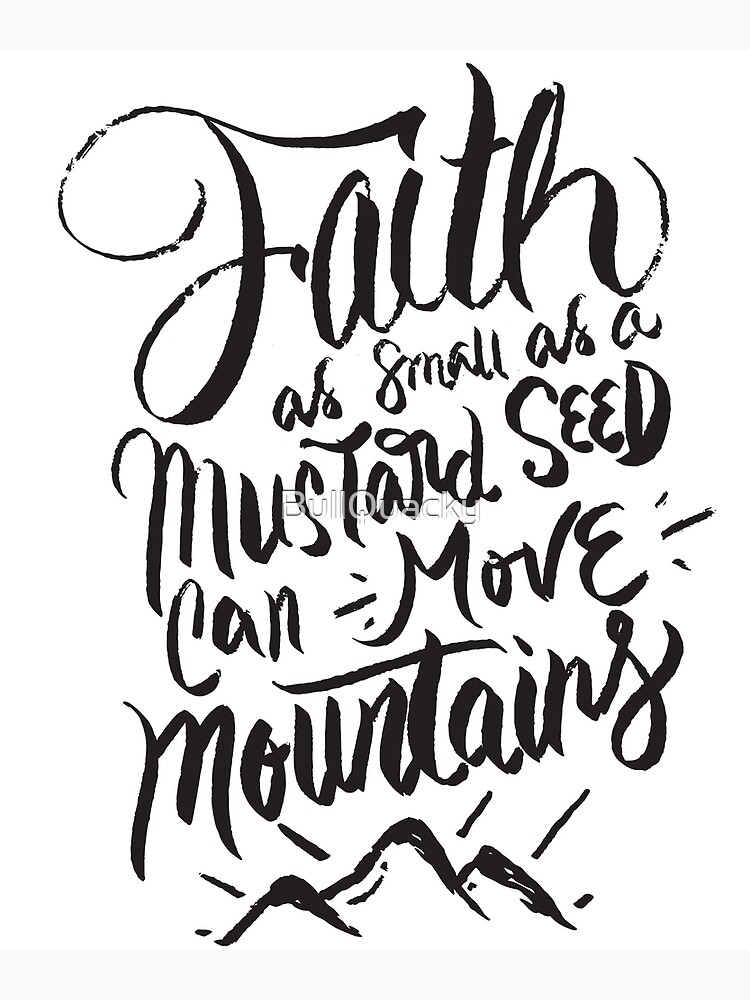 Faith
as small as a
MUSTARd SEED
BullQuacky
can MOVE
mountains